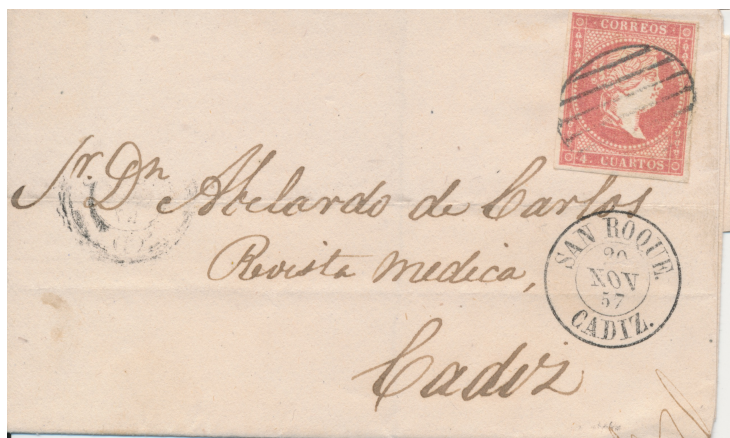 CORREOS
4. CUARTOS
Sr. Dn Abelardo de Carlos
Revista Medica,
Cadiz
SAN ROQUE.
20
NOV
57
CADIZ.